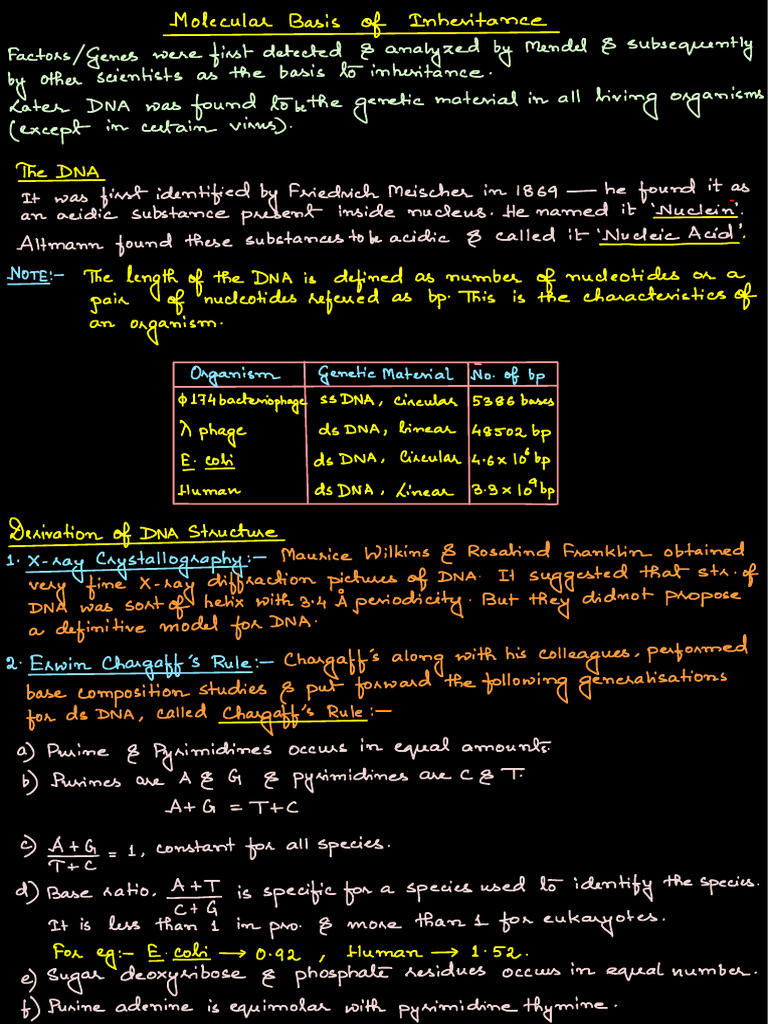 Molecular Basis of Inheritance
Factors/Genes were first detected & analyzed by Mendel & subsequently
by other scientists as the basis to inheritance.
Later DNA was found to be the genetic material in all living organisms
(except in certain virus).
The DNA
It was first identified by Friedrich Meischer in 1869 — he found it as
an acidic substance present inside nucleus. He named it 'Nuclein'.
Altmann found these substances to be acidic & called it 'Nucleic Acid'.
NOTE:- The length of the DNA is defined as number of nucleotides or a
pair of nucleotides referred as bp. This is the characteristics of
an organism.
Organism Genetic Material No. of bp
φ174 bacteriophage ssDNA, circular 5386 bases
λ phage dsDNA, linear 48502 bp
E. coli dsDNA, Circular 4.6 x 10⁶ bp
Human dsDNA, Linear 3.3 x 10⁹ bp
Derivation of DNA Structure
1. X-ray Crystallography:- Maurice Wilkins & Rosalind Franklin obtained
very fine X-ray diffraction pictures of DNA. It suggested that str. of
DNA was sort of helix with 3.4 Å periodicity. But they didnot propose
a definitive model for DNA.
2. Erwin Chargaff's Rule:- Chargaff's along with his colleagues, performed
base composition studies & put forward the following generalisations
for ds DNA, called Chargaff's Rule:-
a) Purine & Pyrimidines occurs in equal amounts.
b) Purines are A & G & pyrimidines are C & T.
A+G = T+C
c) A+G/T+C = 1, constant for all species.
d) Base ratio, A+T/C+G is specific for a species used to identify the species.
It is less than 1 in pro. & more than 1 for eukaryotes.
For eg:- E. coli → 0.92 , Human → 1.52.
e) Sugar deoxyribose & phosphate residues occurs in equal number.
f) Purine adenine is equimolar with pyrimidine thymine.